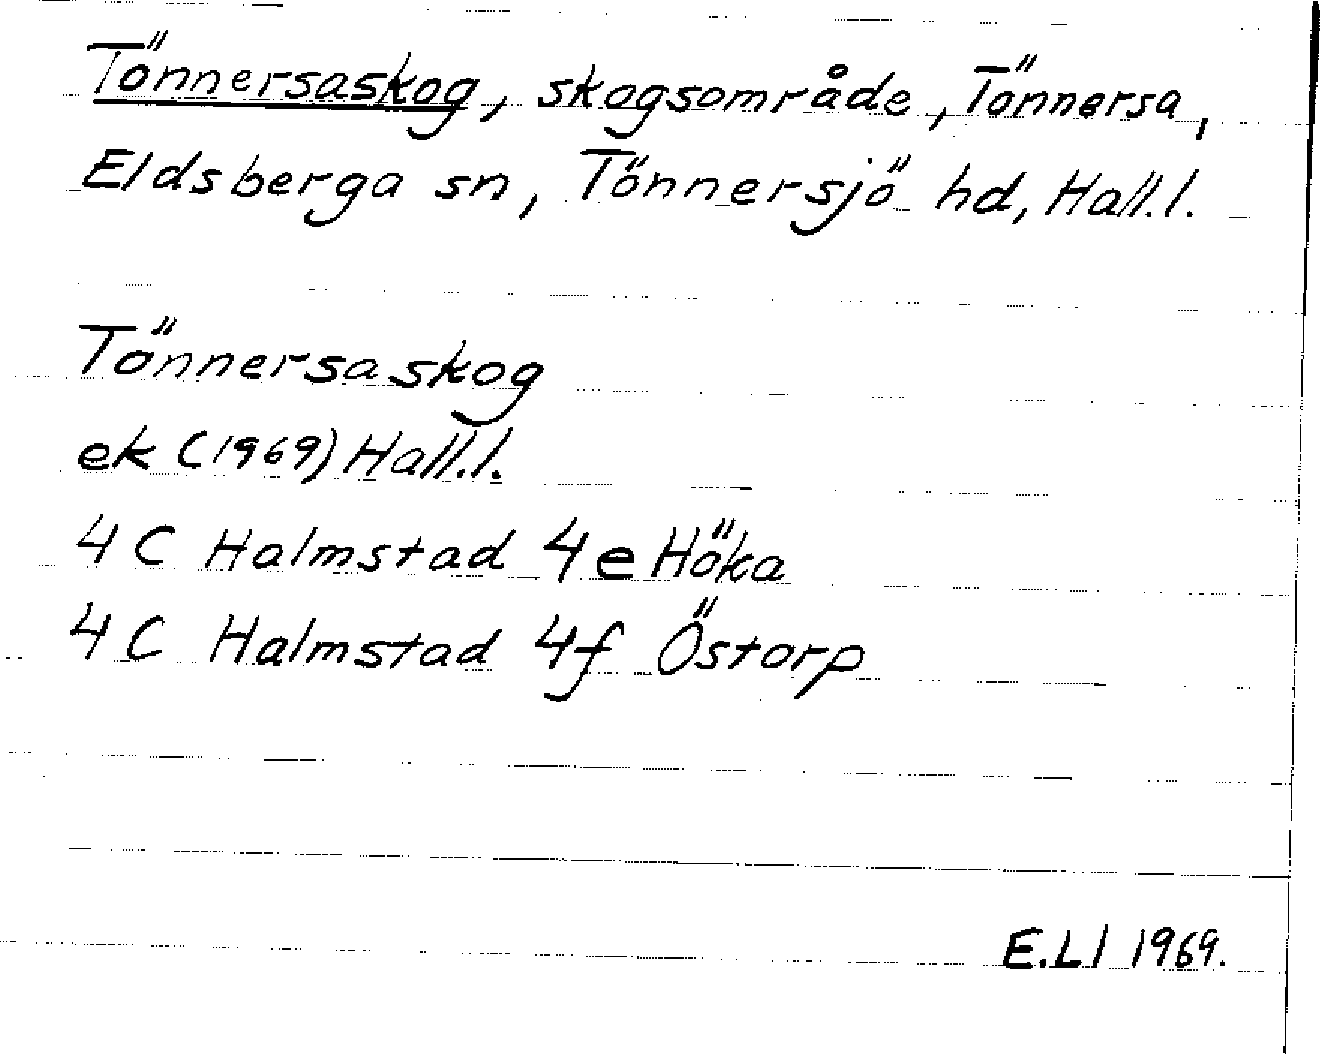 Tönnersaskog, skogsområde, Tönnersa,
Eldsberga sn, Tönnersjö hd, Hall.l.
Tönnersaskog
ek (1969) Hall.l.
4 C Halmstad 4e Höka
4 C Halmstad 4f Östorp
E.Ll 1969.